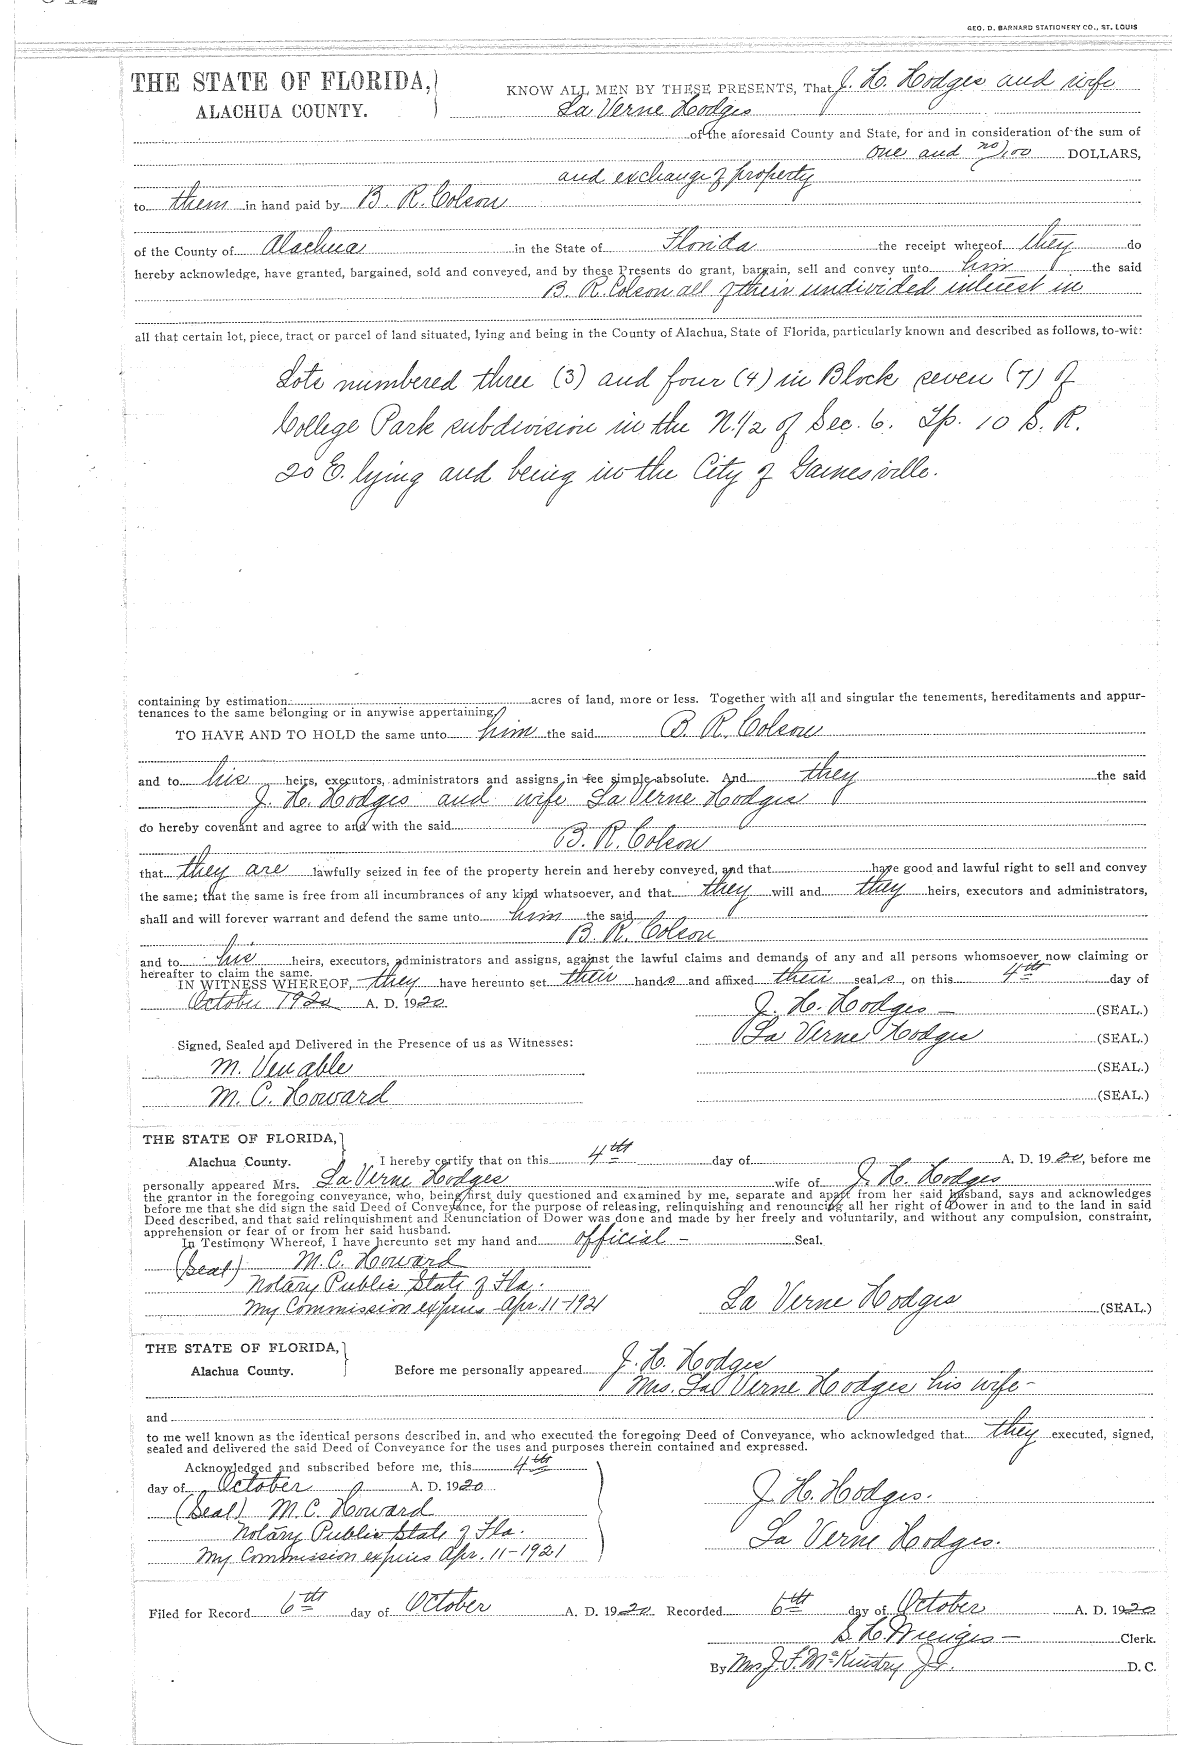 GEO. D. BARNARD STATIONERY CO., ST. LOUIS
THE STATE OF FLORIDA,
ALACHUA COUNTY.
KNOW ALL MEN BY THESE PRESENTS, That J. H. Hodges and wife
La Verne Hodges
of the aforesaid County and State, for and in consideration of the sum of
One and no/100 DOLLARS,
and exchange of property
to them in hand paid by B. R. Colson
of the County of Alachua in the State of Florida the receipt whereof they do
hereby acknowledge, have granted, bargained, sold and conveyed, and by these Presents do grant, bargain, sell and convey unto him the said
B. R. Colson all of their undivided interest in
all that certain lot, piece, tract or parcel of land situated, lying and being in the County of Alachua, State of Florida, particularly known and described as follows, to-wit:
Lots numbered three (3) and four (4) in Block seven (7) of
College Park subdivision in the N.1/2 of Sec. 6. Tp. 10 S. R.
20 E. lying and being in the City of Gainesville.
containing by estimation acres of land, more or less. Together with all and singular the tenements, hereditaments and appur-
tenances to the same belonging or in anywise appertaining
TO HAVE AND TO HOLD the same unto him the said B. R. Colson
and to his heirs, executors, administrators and assigns in fee simple absolute. And they the said
J. H. Hodges and wife La Verne Hodges
do hereby covenant and agree to and with the said
B. R. Colson
that they are lawfully seized in fee of the property herein and hereby conveyed, and that have good and lawful right to sell and convey
the same; that the same is free from all incumbrances of any kind whatsoever, and that they will and they heirs, executors and administrators,
shall and will forever warrant and defend the same unto him the said
B. R. Colson
and to his heirs, executors, administrators and assigns, against the lawful claims and demands of any and all persons whomsoever now claiming or
hereafter to claim the same.
IN WITNESS WHEREOF, they have hereunto set their hands and affixed their seals, on this 4th day of
October 1920 A. D. 1920
J. H. Hodges (SEAL.)
La Verne Hodges (SEAL.)
Signed, Sealed and Delivered in the Presence of us as Witnesses:
M. Venable (SEAL.)
M. C. Howard (SEAL.)
THE STATE OF FLORIDA,
Alachua County. I hereby certify that on this 4th day of A. D. 1920, before me
personally appeared Mrs. La Verne Hodges wife of J. H. Hodges
the grantor in the foregoing conveyance, who, being first duly questioned and examined by me, separate and apart from her said husband, says and acknowledges
before me that she did sign the said Deed of Conveyance, for the purpose of releasing, relinquishing and renouncing all her right of Dower in and to the land in said
Deed described, and that said relinquishment and Renunciation of Dower was done and made by her freely and voluntarily, and without any compulsion, constraint,
apprehension or fear of or from her said husband.
In Testimony Whereof, I have hereunto set my hand and official - Seal.
(Seal) M. C. Howard
Notary Public State of Fla.
My Commission expires Apr. 11-1921
La Verne Hodges (SEAL.)
THE STATE OF FLORIDA,
Alachua County. Before me personally appeared J. H. Hodges
Mrs. La Verne Hodges his wife-
and
to me well known as the identical persons described in, and who executed the foregoing Deed of Conveyance, who acknowledged that they executed, signed,
sealed and delivered the said Deed of Conveyance for the uses and purposes therein contained and expressed.
Acknowledged and subscribed before me, this 4th
day of October A. D. 1920
(Seal) M. C. Howard
Notary Public State of Fla.
My Commission expires Apr. 11-1921
J. H. Hodges.
La Verne Hodges.
Filed for Record 6th day of October A. D. 1920 Recorded 6th day of October A. D. 1920
S. H. Wienges - Clerk.
By Mrs J. F. McKinstry Jr. D. C.